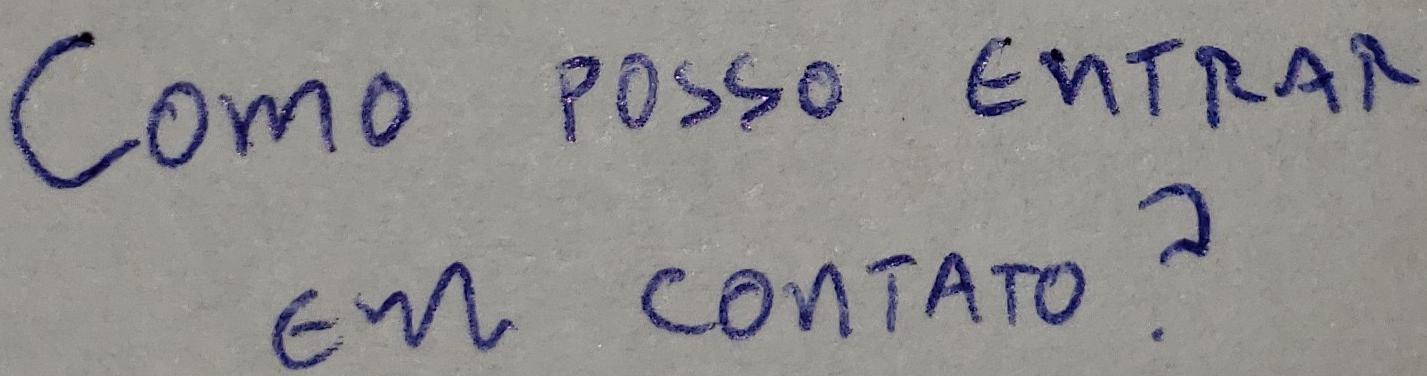 Como posso entrar
em contato?